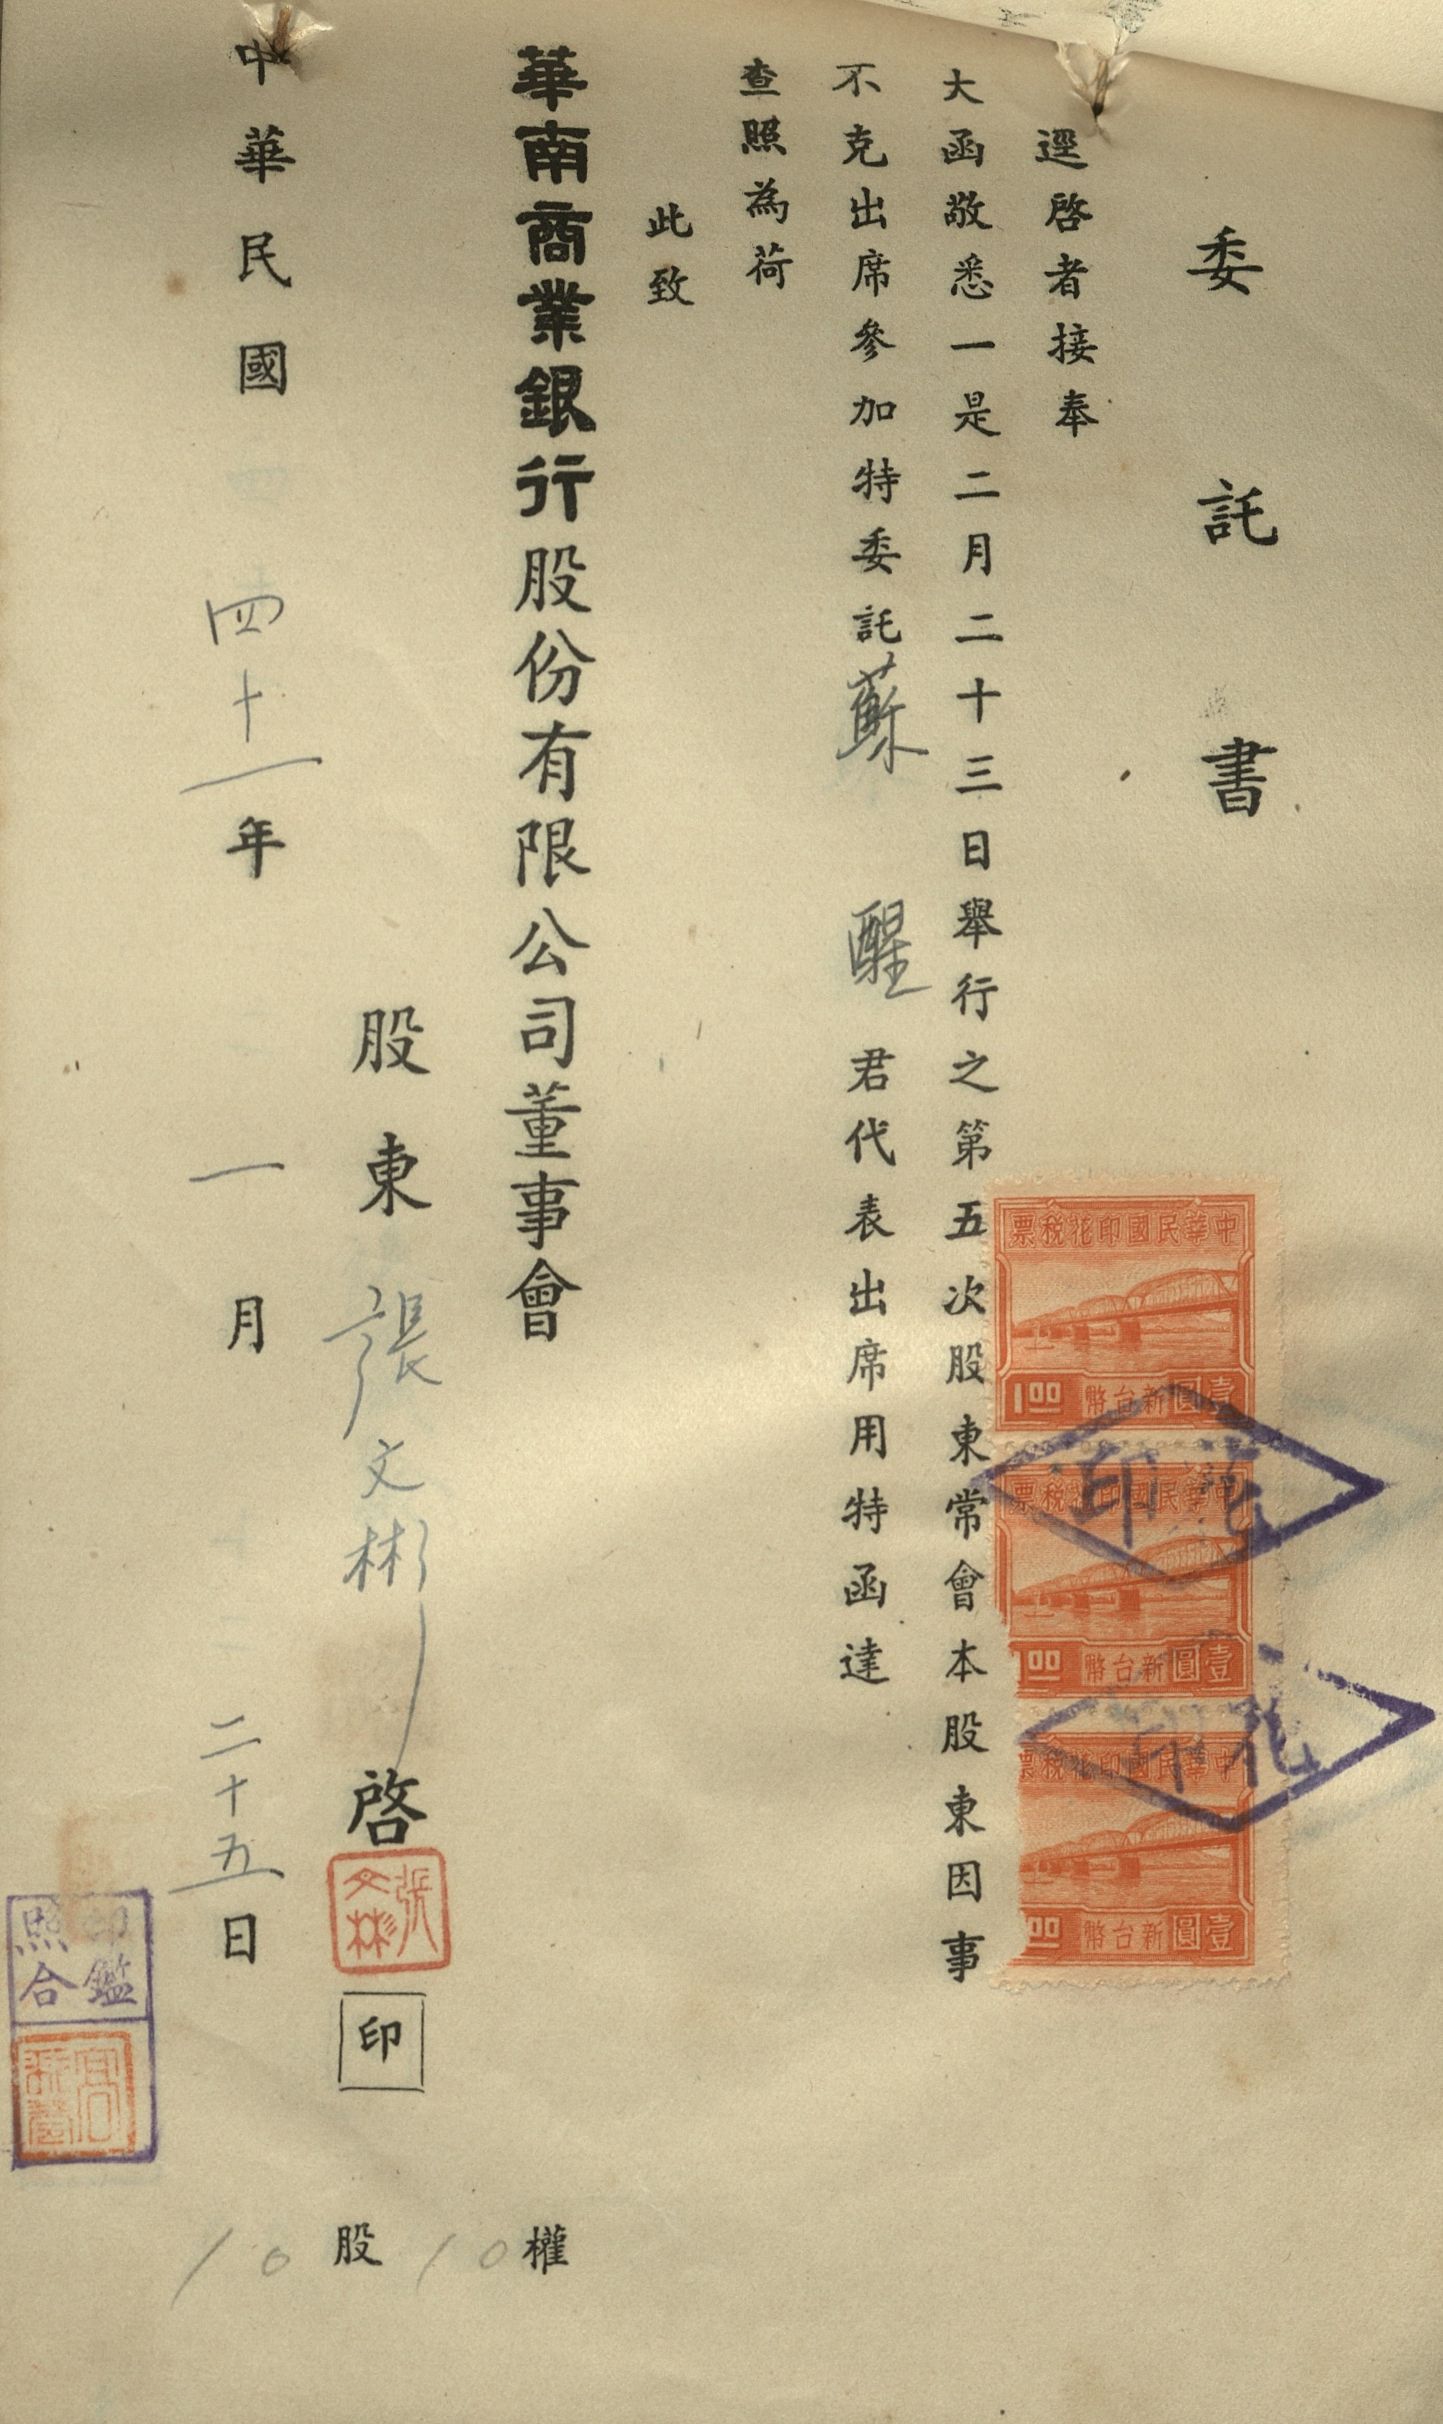 委託書
逕啓者接奉
大函敬悉一是二月二十三日舉行之第五次股東常會本股東因事
不克出席參加特委託蘇醒君代表出席用特函達
查照為荷
此致
華南商業銀行股份有限公司董事會
股東張文彬啓
張文彬
印
中華民國四十一年一月二十五日
10股10權
中華民國印花稅票
壹圓新台幣
1.00
中華民國印花稅票
壹圓新台幣
1.00
中華民國印花稅票
壹圓新台幣
1.00
印花
印花
印鑑
照合